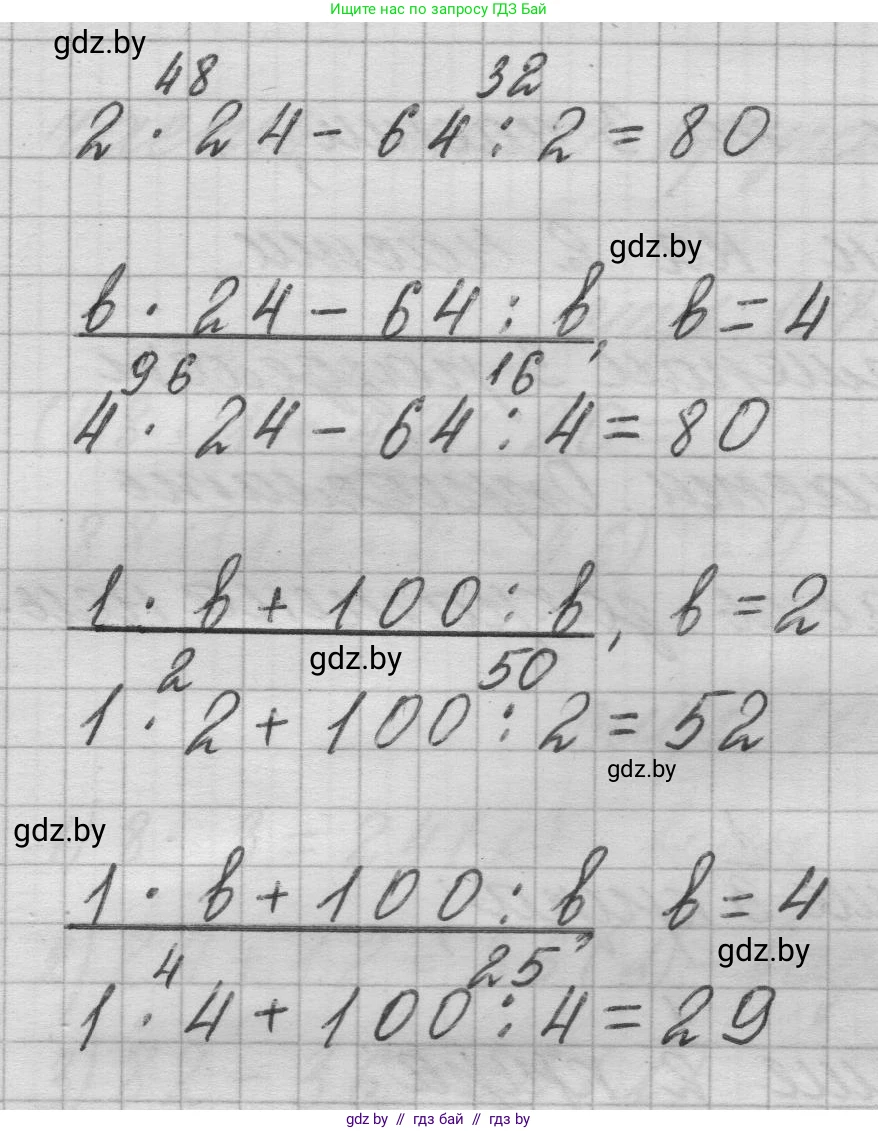 Ищите нас по запросу ГДЗ Бай
gdz.by
48 32
2 · 24 - 64 : 2 = 80
gdz.by
в · 24 - 64 : в, в = 4
96 16
4 · 24 - 64 : 4 = 80
1 · в + 100 : в, в = 2
2 gdz.by 50
1 · 2 + 100 : 2 = 52
gdz.by
gdz.by
1 · в + 100 : в, в = 4
gdz.by
4 25
1 · 4 + 100 : 4 = 29
gdz.by // гдз бай // gdz by